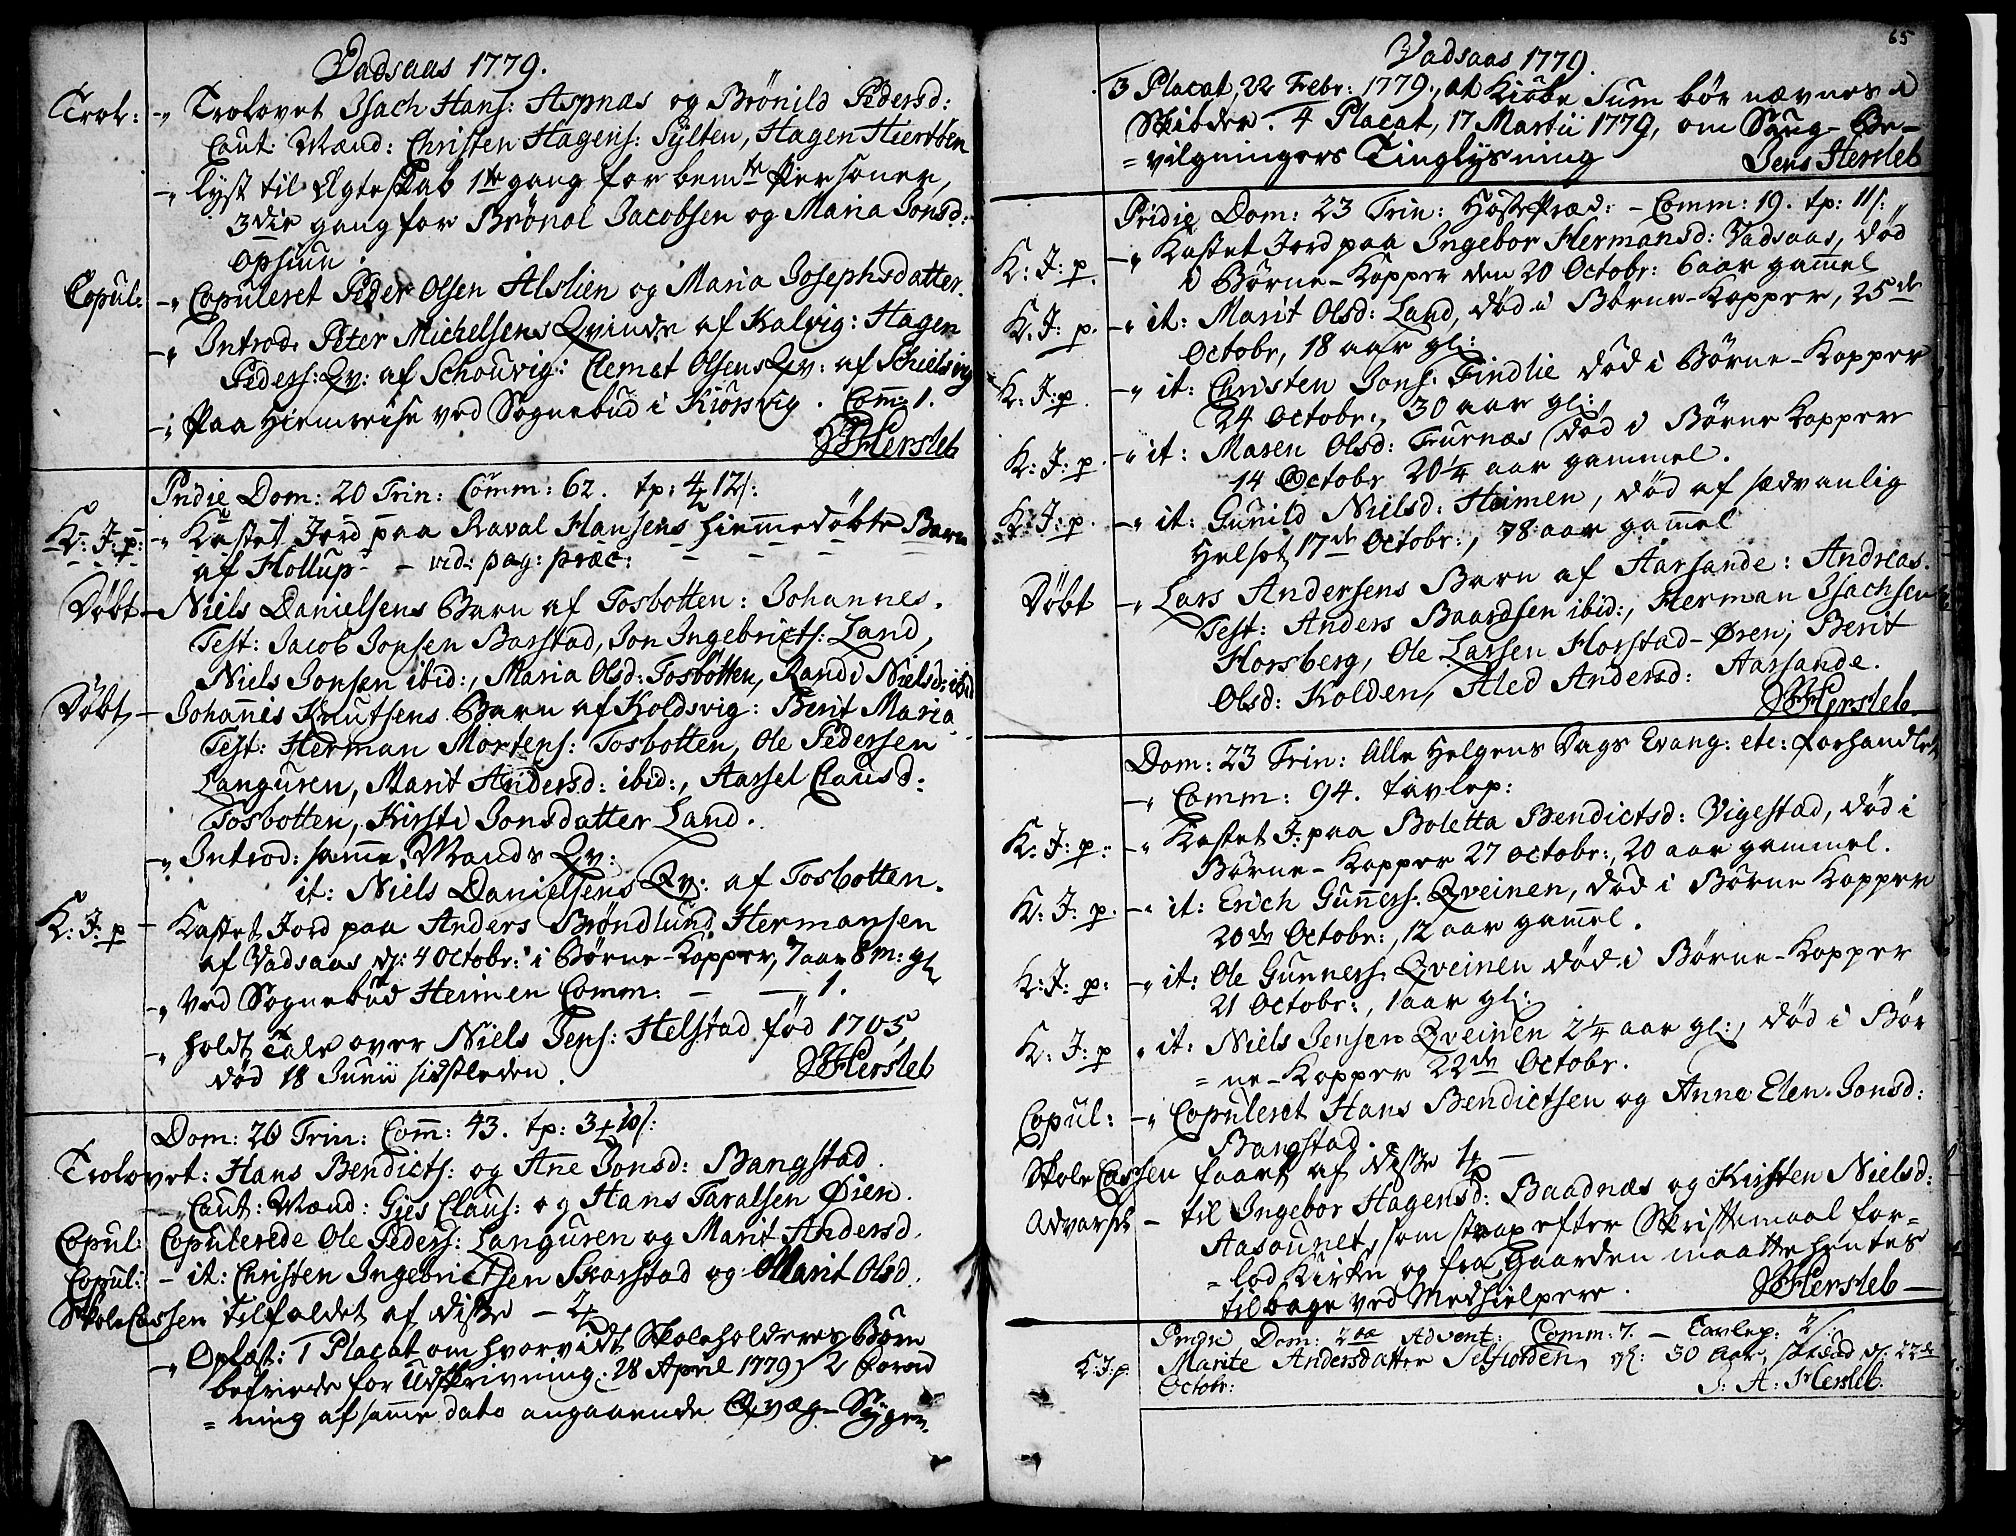 Vadsaas 1779.
Trol: -„ Trolovet Isach Hans: Aspnæs og Brönild Pedersd:
Caut: Mænd: Christen Hagens: Sylten, Hagen
-„ Lyst til Ægteskab 1te gang for bemte Personer,
3die gang for Brönol Jacobsen og Maria Jonsd:
Opsiuu.
Copul: -„ Copuleret Peder Olsen Alslien og Maria Josephsdatter.
-„ Introd. Peter Michelsens Qvinde af Kalvig: Hagen
Peders: Qv: af Schouvig: Clemet Olsens Qv: af Schielsvig
-„ Paa Hiemreise ved Sognebud i Kiörsvig. Com: 1.
JFHersleb
Pridie Dom: 20 Trin: Comm: 62. tp: 4 12s:
K: J: p: -„ Kastet Jord paa Raval Hansens Hiemmedöbte Barn
af Hollup - vid: pag: præc:
Döbt - Niels Danielsens Barn af Tosbotten: Johannes.
Test: Jacob Jonsen Barstad, Jon Ingebricts: Land,
Niels Jonsen ibid:, Maria Olsd: Tosbotten, Randi Nielsd: ibid
Döbt, - Johannes Knutsens Barn af Koldsvig: Berit Maria
Test: Herman Mortens: Tosbotten, Ole Pedersen
Languren, Marit Andersd: ibid:, Aassel Clausd:
Tosbotten, Kirsti Jonsdatter Land.
-„ Introd: samme Mands Qv:
it: Niels Danielsens Qv: af Tosbotten.
K: J: p - Kastet Jord paa Anders Bröndlund Hermansen
af Vadsaas d: 4 Octobr: i Börne-Kopper, 7 aar 8 m: gl
-„ Ved Sognebud Heimen Comm: - - 1.
-„ holdt Tale over Niels Jens: Helstad föd 1705,
död 18 Junii sidstleden.
JFHersleb
Dom: 20 Trin: Comm: 43. tp: 3 10s:
Trolovet: Hans Bendicts: og Ane Jonsd: Bangstad.
Caut: Mænd: Gies Claus: og Hans Taralsen Öien.
Copul: Copulerede Ole Peders: Languren og Marit Andersd.
Copul: - it: Christen Ingebrictsen Skarstad og Marit Olsd.
Skole Cassen tilfaldet af disse - 2
-„ Oplæst: 1 Placat om hvorvidt Skoleholderes Börn
befriede for Udskrivning, 28 April 1779, 2 Forord
= ning af samme dato angaaende Qvæg-Sygen.
65
Vadsaas 1779.
3 Placat, 22 Febr: 1779, at Kiöbe Sum bör nævnes i
Skiöder. 4 Placat, 17 Martii 1779, om Be-
= vilgningers Tinglysning Jens Hersleb
Pridie Dom: 23 Trin: HöstPræd: - Comm: 19. tp: 11s:
K: J: p. -„ Kastet Jord paa Ingebor Hermansd: Vadsaas, död
i Börne-Kopper den 20 Octobr: 6 aar gammel
K. J: p. -„ it: Marit Olsd: Land, död i Börne-Kopper, 25de
Octobr, 18 aar gl:
K: J: p. -„ it: Christen Jons: Tindlie död i Börne-Kopper
24 Octobr:, 30 aar gl:,
K: J: p. -„ it: Maren Olsd: Furnæs död i Börne Kopper
14 Octobr 20 1/4 aar gammel.
K: J: p. -„ it: Gunild Nielsd: Heimen, död af sædvanlig
Helsot 17de Octobr:, 78 aar gammel
Döbt -„ Lars Andersens Barn af Aarsande: Andreas.
Test: Anders Baardsen ibid:, Herman Isachsen
Horsberg, Ole Larsen Horstad-Ören, Berit
Olsd: Kolden, Aled Andersd: Aarsande.
JFHersleb
Dom: 23 Trin: Alle Helgens Dags Evang: etc: forhandlet
-„ Comm: 94. tavlep:
K: J: p: -„ Kastet J: paa Boletta Bendictsd: Vigestad, död i
Börne-Kopper 27 Octobr:, 20 aar gammel.
K: J: p. -„ it: Erich Gunners: Qveinen, död i Börne Kopper
20de Octobr:, 12 aar gammel.
K: J: p: -„ it: Ole Gunners: Qveinen död i Börne-Kopper
21 Octobr:, 1 aar gl:
K: J: p „ it: Niels Jensen Qveinen 2 1/4 aar gl:, död i Bör
= ne-Kopper 22de Octobr.
Copul: -„ Copuleret Hans Bendictsen og Anne Elen Jonsd:
Bangstad.
Skole Cassen faaet af disse 1 -
Advarsel - til Ingebor Hagensd: Baadnæs og Kirsten Nielsd:
Aasounet, som strax efter Skriftemaal for=
= lod Kirken og fra Gaarden maatte hentes
tilbage ved Medhielpere.
JFHersleb -
Pridie Dom: 2da Advent: Comm: 7. - Tavlep: 2s
K: J: p: Marite Andersdatter gl: 30 Aar, d: 22de
Octobr:
J: A: Hersleb.